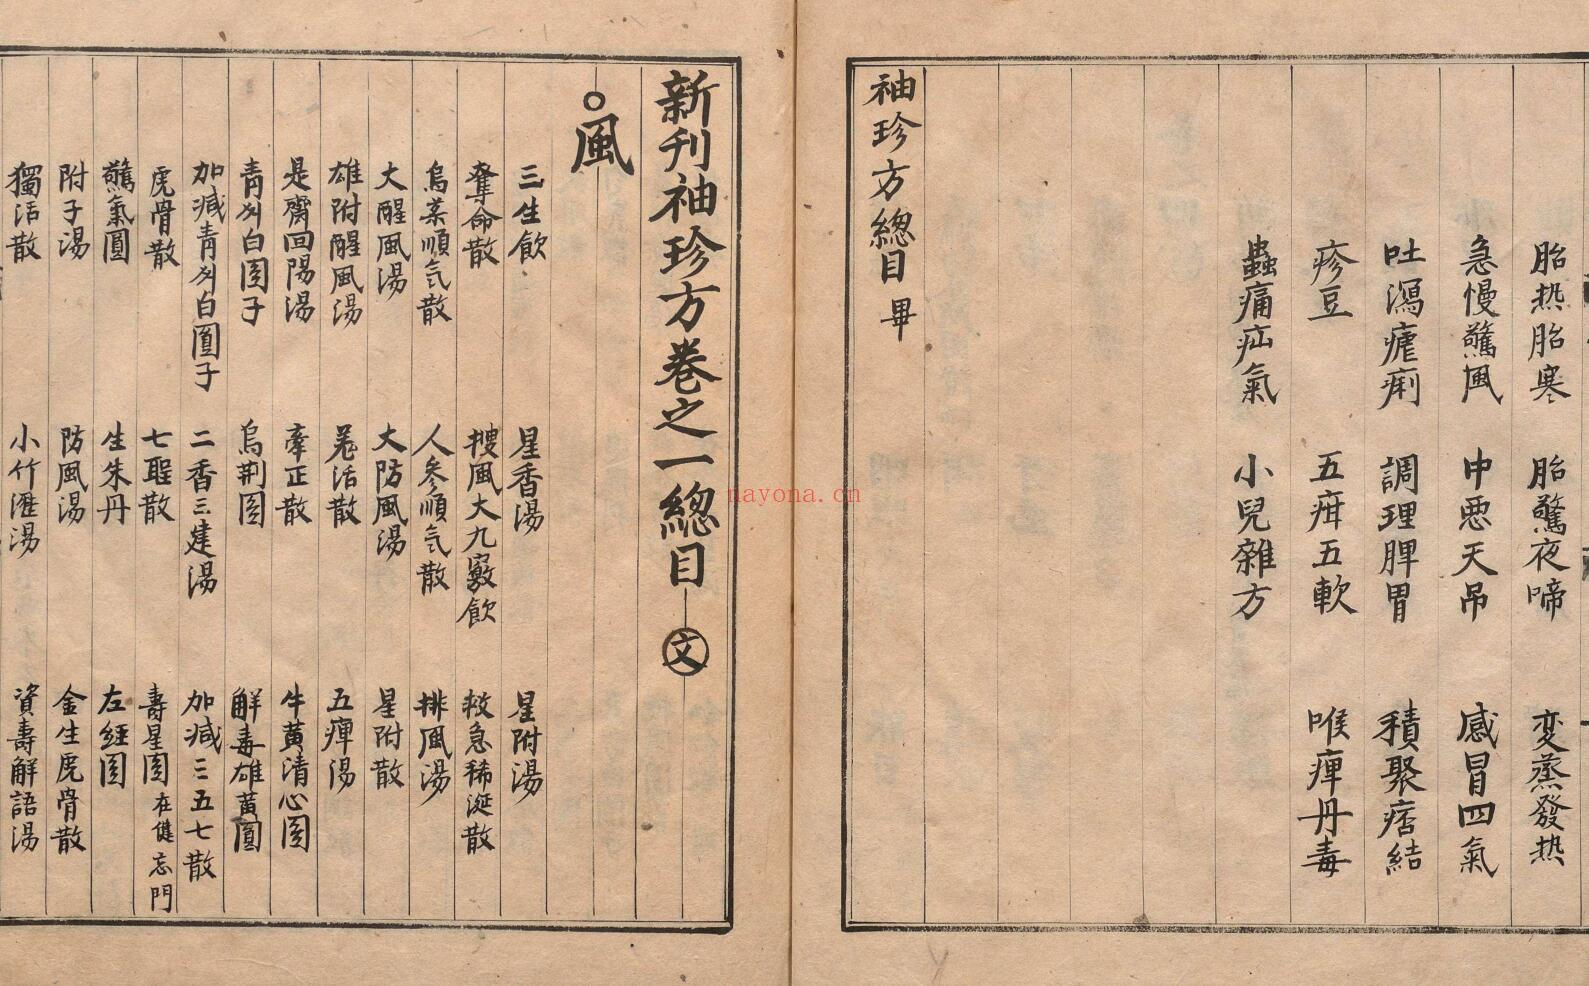 胎热胎寒　胎驚夜啼　変蒸發热
急慢驚風　中悪天吊　感冒四氣
吐瀉瘧痢　調理脾胃　積聚痞結
疹豆　五疳五軟　喉痺丹毒
蟲痛疝氣　小兒雜方
袖珍方總目畢
新刊袖珍方卷之一總目 文
○風
三生飲　星香湯　星附湯
奪命散　搜風大九竅飲　救急稀涎散
烏薬順気散　人參順気散　排風湯
大醒風湯　大防風湯　星附散
雄附醒風湯　羗活散　五痺湯
是齋回陽湯　牽正散　牛黄清心圎
青州白圎子　烏荆圎　解毒雄黄圓
加減青州白圓子　二香三建湯　加減三五七散
虎骨散　七聖散　壽星圎 在健忘門
驚氣圓　生朱丹　左經圎
附子湯　防風湯　金生虎骨散
獨活散　小竹瀝湯　資壽解語湯
nayona.cn